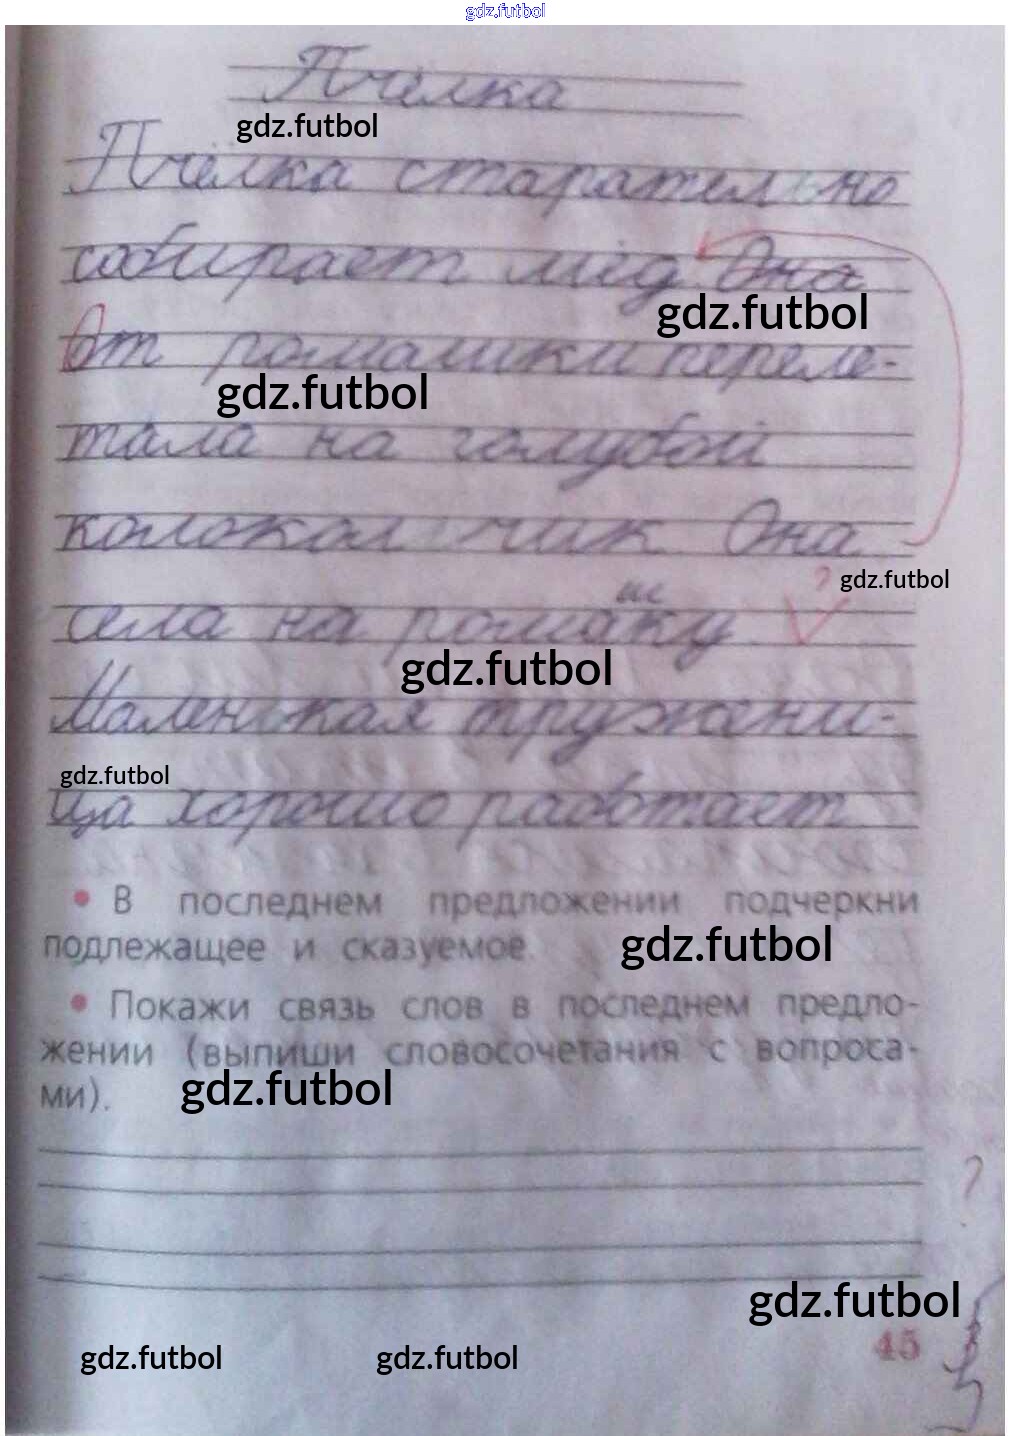 gdz.futbol
Пчёлка
gdz.futbol
Пчёлка старательно
собирает мёд. Она
gdz.futbol
От ромашки переле-
gdz.futbol
тала на голубой
колокольчик Она
gdz.futbol
ш
села на ромаку
gdz.futbol
Маленькая тружени-
gdz.futbol
ца хорошо работает
• В последнем предложении подчеркни
подлежащее и сказуемое.
gdz.futbol
• Покажи связь слов в последнем предло-
жении (выпиши словосочетания с вопроса-
ми).
gdz.futbol
?
gdz.futbol
45
gdz.futbol
gdz.futbol